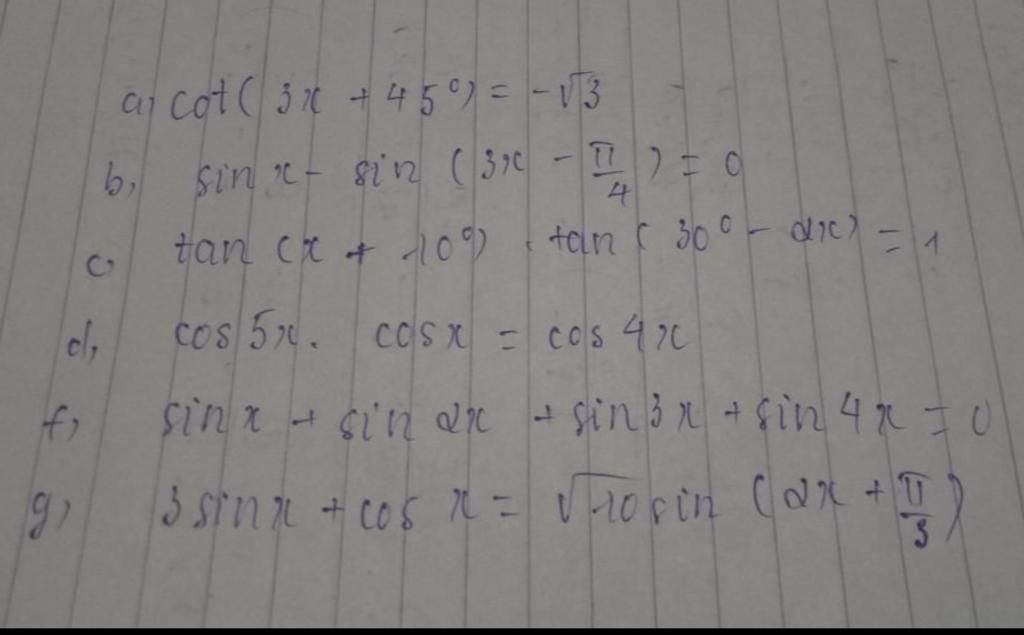 a, cot( 3x + 45°) = -√3
b, sin x - sin (3x - π/4) = 0
c, tan (x + 10°) . tan( 30° - 2x) = 1
d, cos 5x. cos x = cos 4x
f, sin x + sin 2x + sin 3x + sin 4x = 0
g, 3 sin x + cos x = √10 sin (2x + π/3)